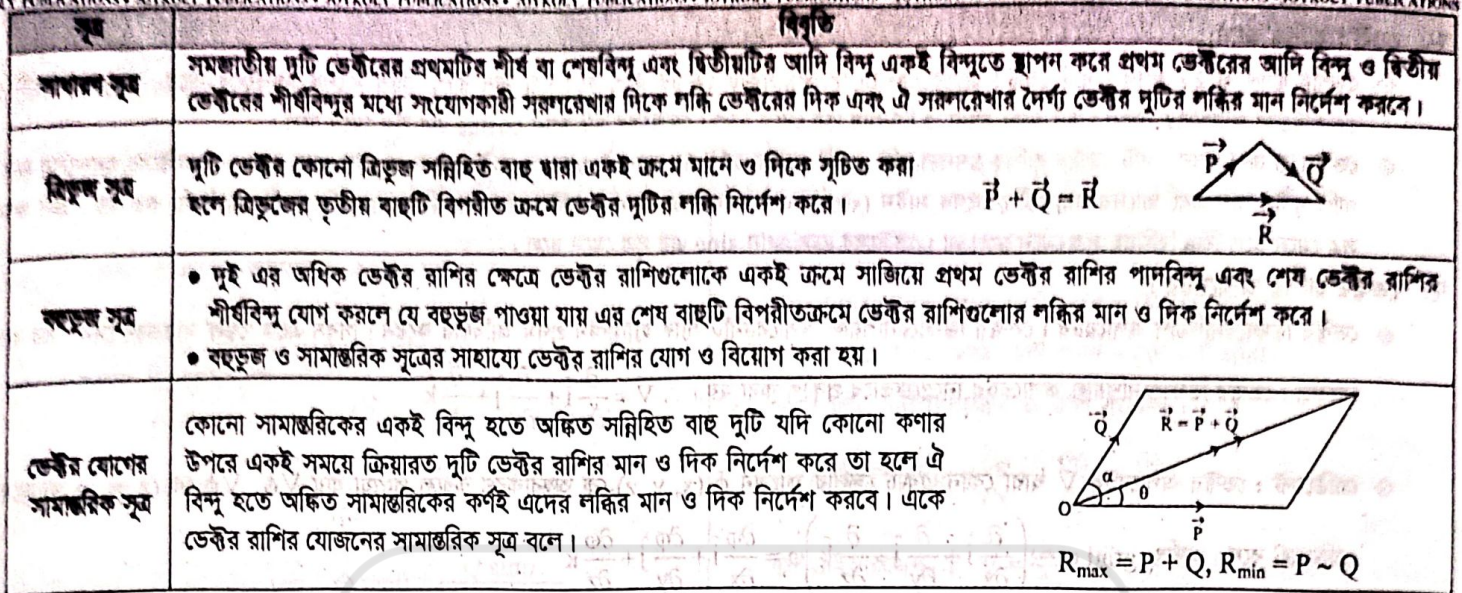 সূত্র
বিবৃতি
সাধারণ সূত্র
সমজাতীয় দুটি ভেক্টরের প্রথমটির শীর্ষ বা শেষবিন্দু এবং দ্বিতীয়টির আদি বিন্দু একই বিন্দুতে স্থাপন করে প্রথম ভেক্টরের আদি বিন্দু ও দ্বিতীয়
ভেক্টরের শীর্ষবিন্দুর মধ্যে সংযোগকারী সরলরেখার দিকে লব্ধি ভেক্টরের দিক এবং ঐ সরলরেখার দৈর্ঘ্য ভেক্টর দুটির লব্ধির মান নির্দেশ করবে।
ত্রিভুজ সূত্র
দুটি ভেক্টর কোনো ত্রিভুজ সন্নিহিত বাহু দ্বারা একই ক্রমে মানে ও দিকে সূচিত করা
হলে ত্রিভুজের তৃতীয় বাহুটি বিপরীত ক্রমে ভেক্টর দুটির লব্ধি নির্দেশ করে।
P⃗ + Q⃗ = R⃗
P⃗
Q⃗
R⃗
বহুভুজ সূত্র
• দুই এর অধিক ভেক্টর রাশির ক্ষেত্রে ভেক্টর রাশিগুলোকে একই ক্রমে সাজিয়ে প্রথম ভেক্টর রাশির পাদবিন্দু এবং শেষ ভেক্টর রাশির
শীর্ষবিন্দু যোগ করলে যে বহুভুজ পাওয়া যায় এর শেষ বাহুটি বিপরীতক্রমে ভেক্টর রাশিগুলোর লব্ধির মান ও দিক নির্দেশ করে।
• বহুভুজ ও সামান্তরিক সূত্রের সাহায্যে ভেক্টর রাশির যোগ ও বিয়োগ করা হয়।
ভেক্টর যোগের
সামান্তরিক সূত্র
কোনো সামান্তরিকের একই বিন্দু হতে অঙ্কিত সন্নিহিত বাহু দুটি যদি কোনো কণার
উপরে একই সময়ে ক্রিয়ারত দুটি ভেক্টর রাশির মান ও দিক নির্দেশ করে তা হলে ঐ
বিন্দু হতে অঙ্কিত সামান্তরিকের কর্ণই এদের লব্ধির মান ও দিক নির্দেশ করবে। একে
ভেক্টর রাশির যোজনের সামান্তরিক সূত্র বলে।
Q⃗
R⃗ = P⃗ + Q⃗
α
θ
O
P⃗
Rmax = P + Q, Rmin = P ~ Q